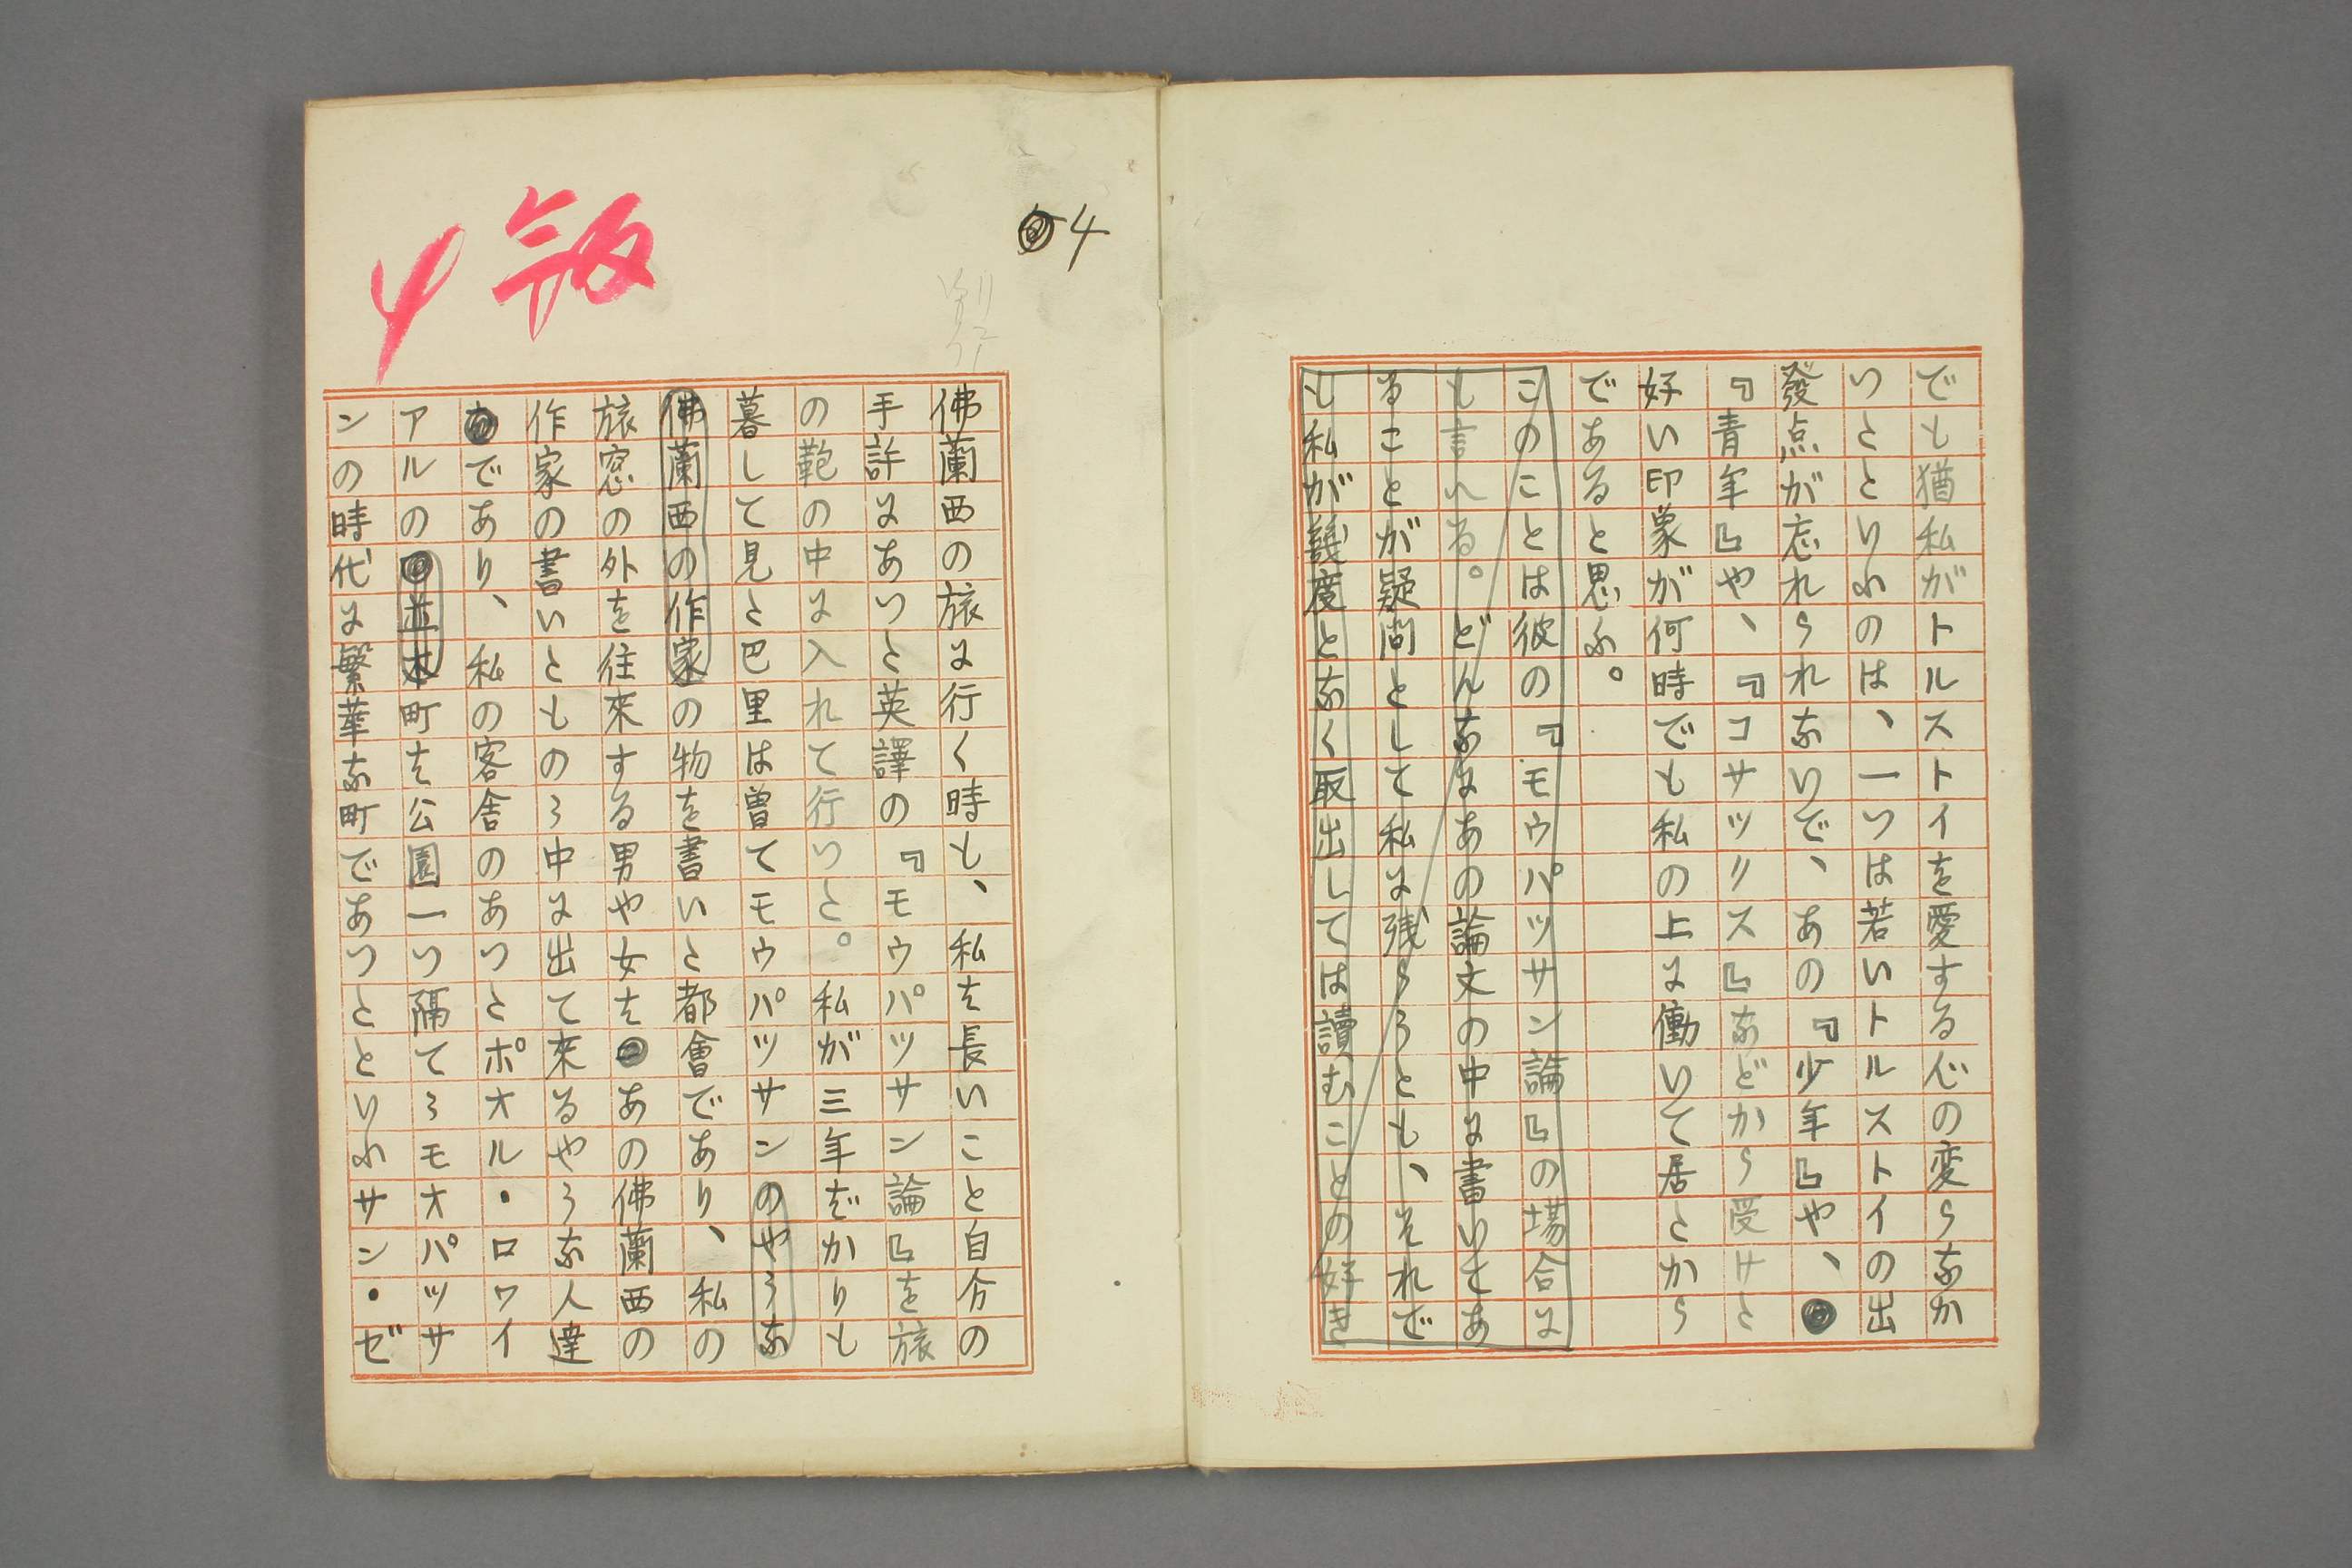 でも猶私がトルストイを愛する心の変らなか
つたといふのは、一つは若いトルストイの出
發点が忘れられないで、あの『少年』や、
『青年』や、『コサックス』などから受けた
好い印象が何時でも私の上に働いて居たから
であると思ふ。
このことは彼の『モウパツサン論』の場合に
も言れる。どんなにあの論文の中に書いてあ
ることが疑問として私に残らうとも、それで
も私が幾度となく取出しては讀むことの好き
4
佛蘭西の旅に行く時も、私は長いこと自分の
手許にあつた英譯の『モウパツサン論』を旅
の鞄の中に入れて行つた。私が三年ばかりも
暮して見た巴里は曾てモウパツサンのやうな
佛蘭西の作家の物を書いた都會であり、私の
旅窓の外を往來する男や女はあの佛蘭西の
作家の書いたものゝ中に出て來るやうな人達
であり、私の客舎のあつたポオル・ロワイ
アルの並木町は公園一つ隔てゝモオパツサ
ンの時代に繁華な町であつたといふサン・ゼ
4